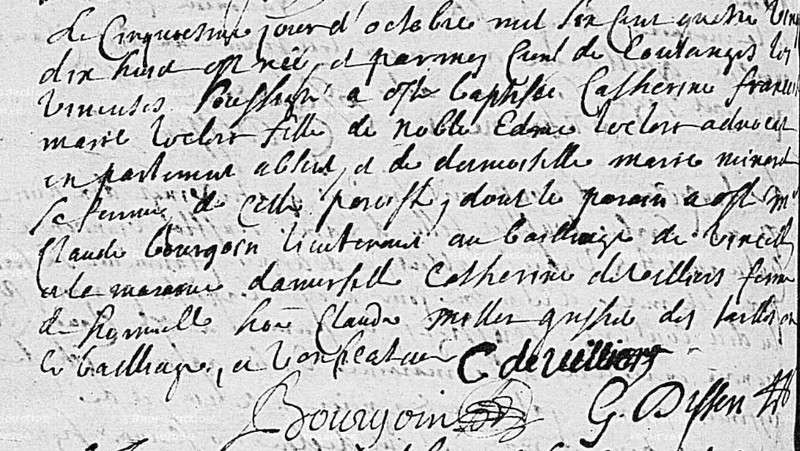 Le Cinquiesme jour d'octobre mil six cent quatre vin
dix huit est née, et par moy curé de Coulanges les
vineuses a esté baptisée Catherine francoi
marie leclerc fille de noble Edme leclerc advocat
en parlement absent, et de damoiselle marie
sa femme, de cette paroisse, dont le parain a esté Mr
Claude bourgoin lieutenant au bailliage de
et la maraine damoiselle Catherine devilliers femme
de honneste hom Claude des tailles
le bailliage, C devilliers
Bourgoin G.